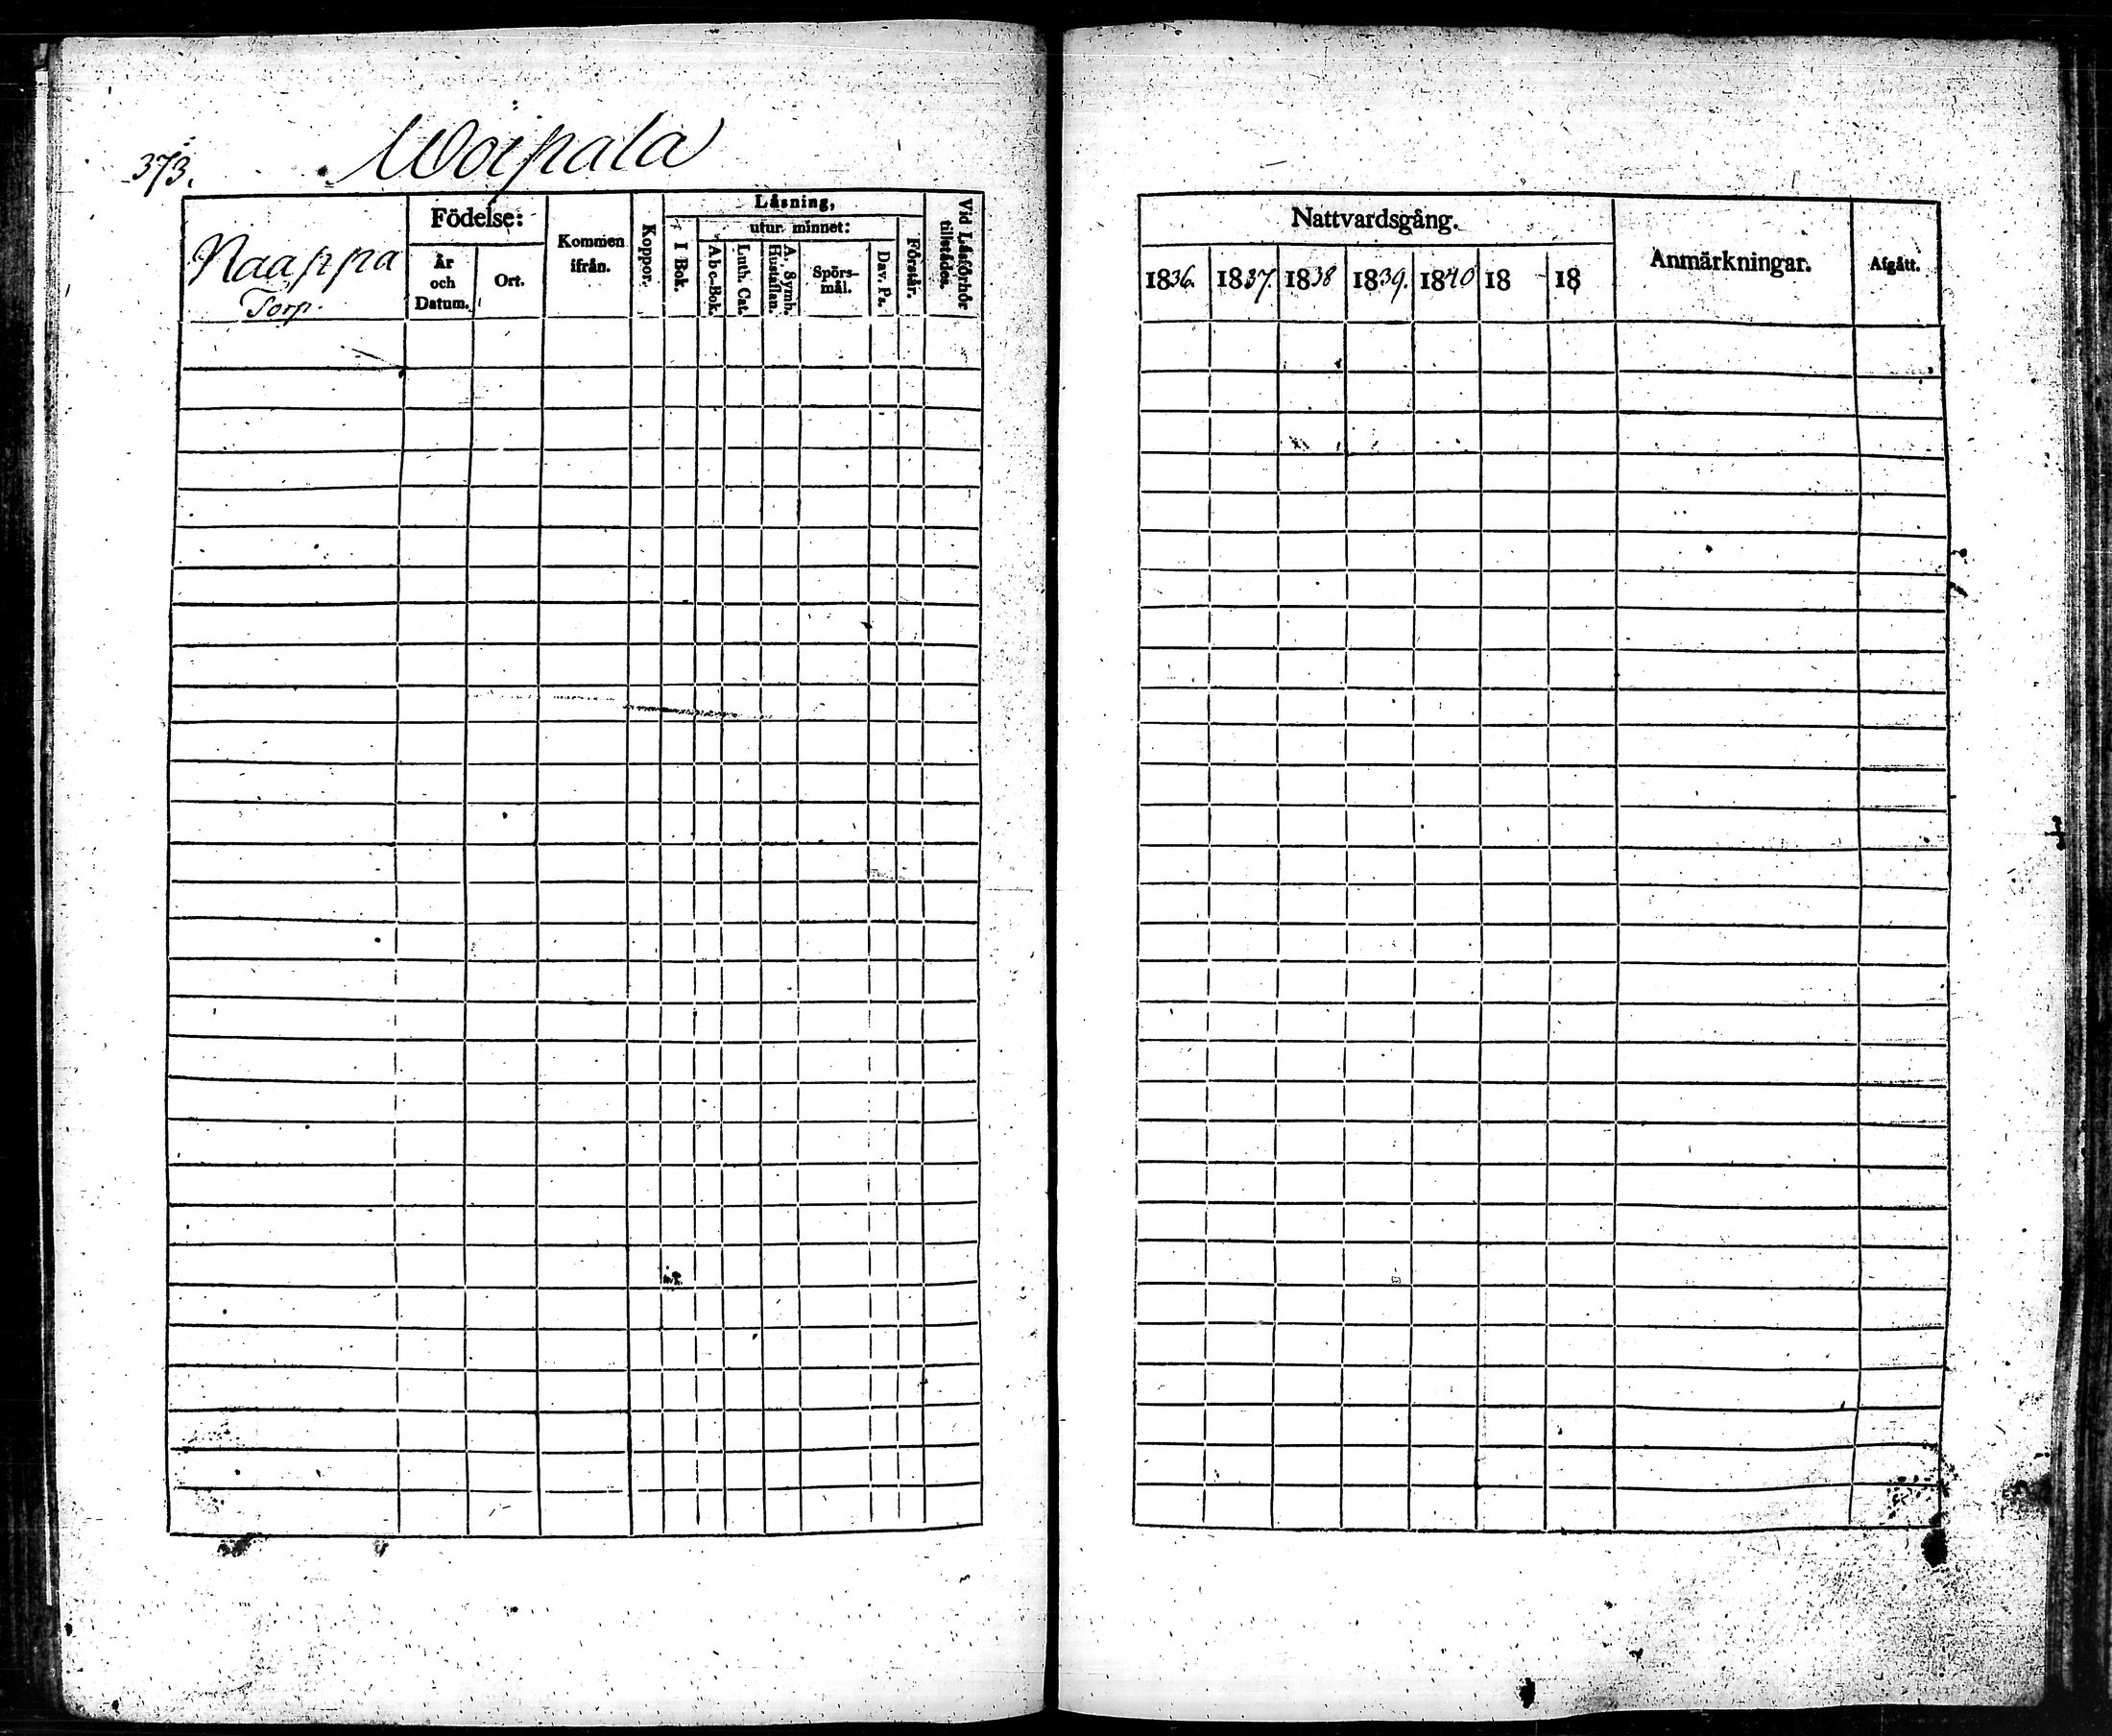 373.
Woipala
Naappa
Torp.
Födelse:
År
och
Datum.
Ort.
Kommen
ifrån.
Koppor.
Läsning,
I Bok.
utur minnet:
Abc-Bok.
Luth. Cat.
A. Symb.
Hustaflan.
Spörs-
mål.
Dav. Ps.
Förstår.
Vid Läsförhör
tillstädes.
Nattvardsgång.
1836. 1837. 1838 1839. 1840 18 18
Anmärkningar.
Afgått.